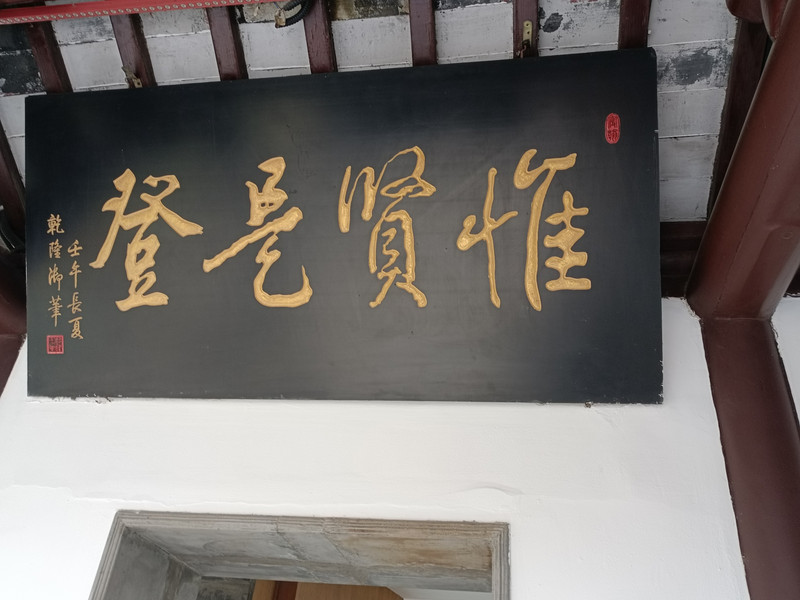 惟賢是登
壬午長夏
乾隆御筆